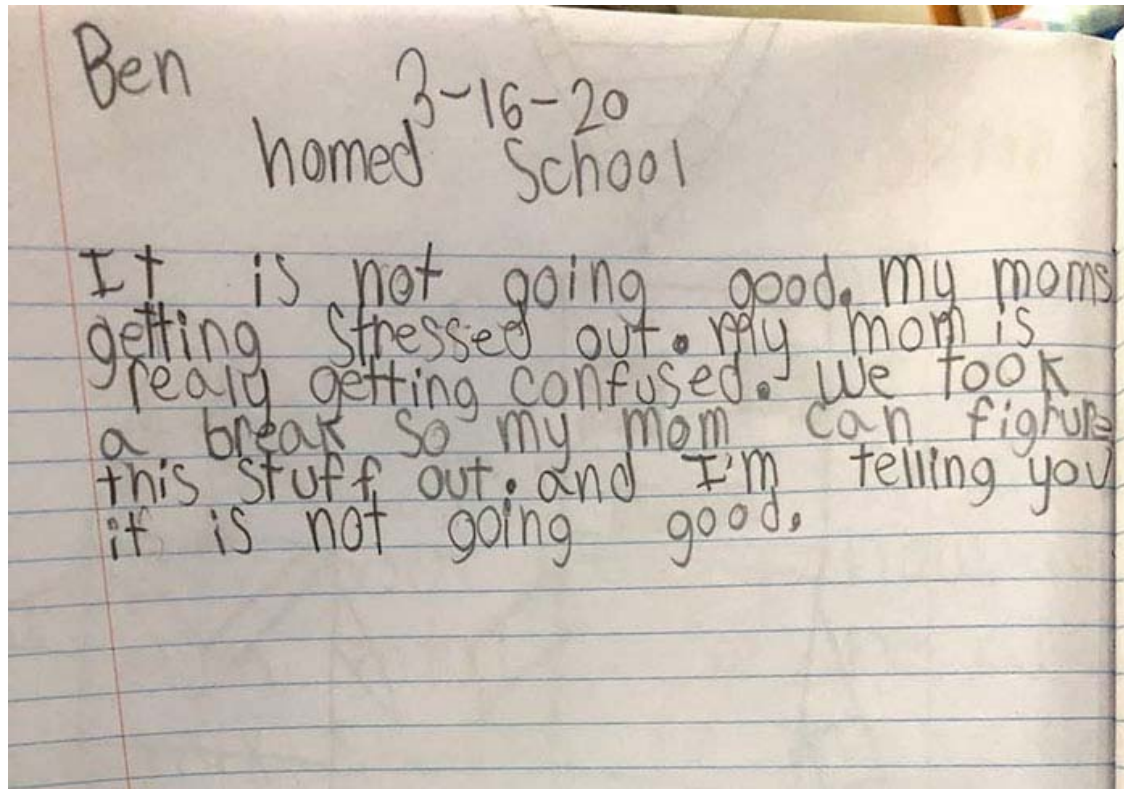 Ben
3-16-20
homed School
It is not going good. my moms
getting stressed out. My mom is
realy getting confused. We took
a break so my mom can fighure
this stuff out. and I'm telling you
it is not going good.